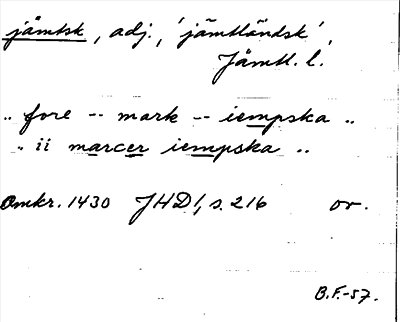 jämtsk, adj., 'jämtländsk'.
Jämtl. l.
.. fore -- mark -- iempska ..
.. ii marcer iempska ..
Omkr. 1430 JHD 1, s. 216 or.
B.F.-57.